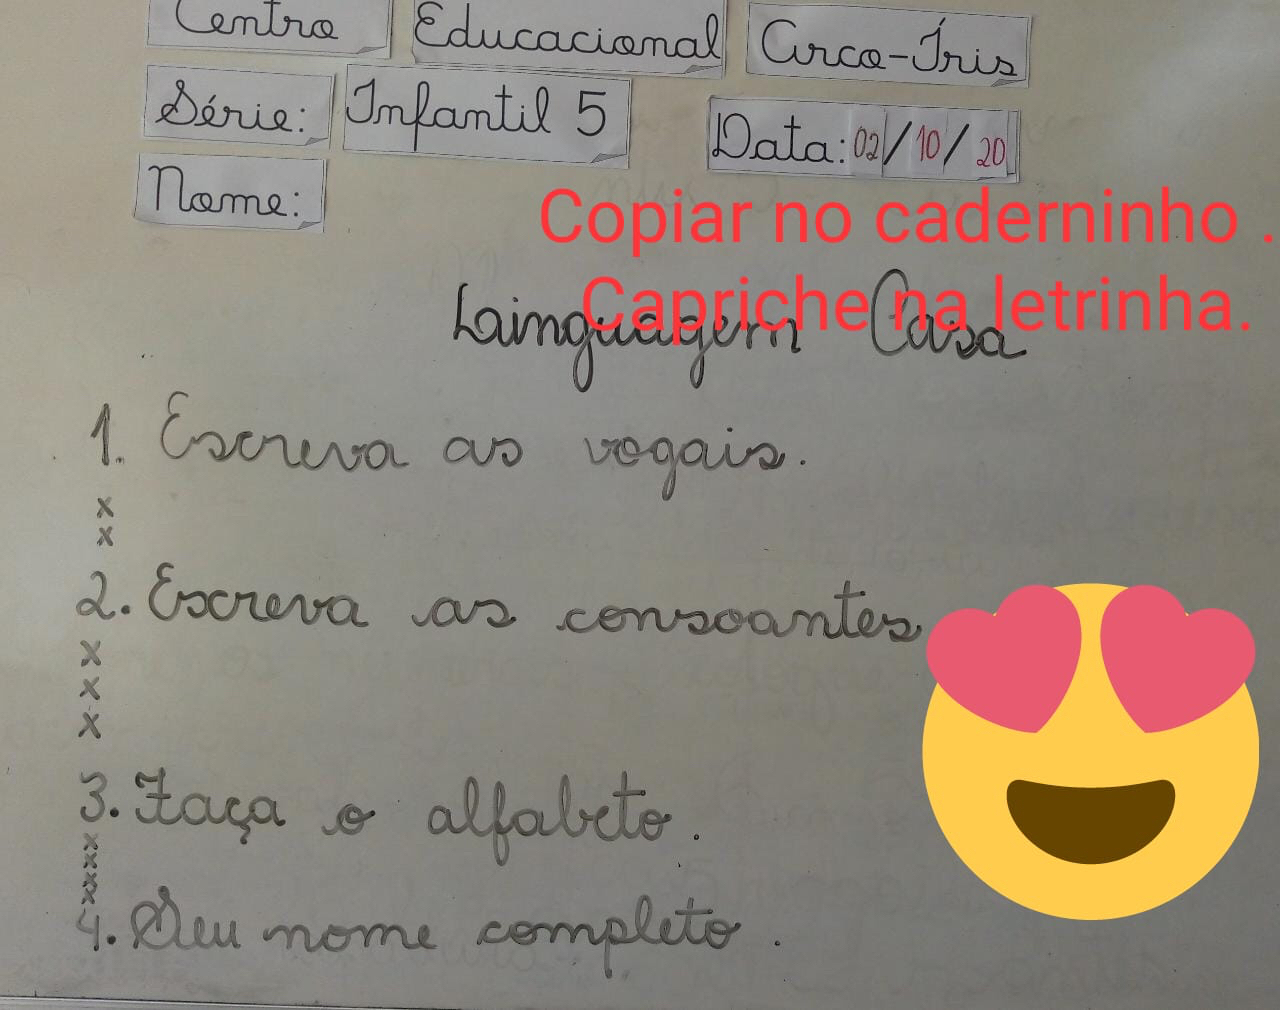 Centro Educacional Arco-Íris
Série: Infantil 5 Data: 02/10/20
Nome:
Copiar no caderninho .
Capriche na letrinha.
Linguagem Casa
1. Escreva as vogais.
x
x
2. Escreva as consoantes
x
x
x
3. Faça o alfabeto.
x
x
x
x
4. Seu nome completo.